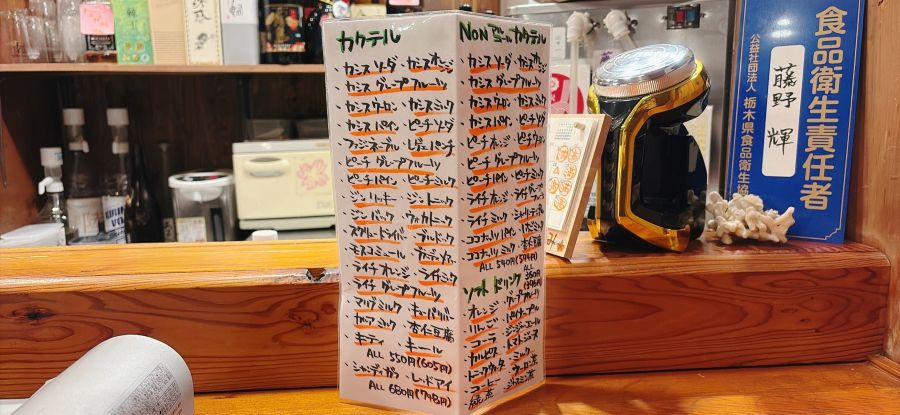 カクテル
・カシスソーダ ・カシスオレンジ
・カシスグレープフルーツ
・カシスウーロン ・カシスミルク
・カシスパイン ・ピーチソーダ
・ファジーネーブル ・レゲエパンチ
・ピーチグレープフルーツ
・ピーチパイン ・ピーチミルク
・ジンリッキー ・ジントニック
・ジンバック ・ウォッカトニック
・スクリュードライバー ・ブルドック
・モスコミュール
・ライチオレンジ ・ライチミルク
・ライチグレープフルーツ
・マリブミルク ・キューバリバー
・カルアミルク ・杏仁豆腐
・キティ ・キール
ALL 550円(605円)
・シャンディガフ ・レッドアイ
ALL 680円(748円)
NON アルコールカクテル
・カシスソーダ ・カシスオレンジ
・カシスグレープフルーツ
・カシスウーロン ・カシスミルク
・カシスパイン ・ピーチソーダ
・ピーチオレンジ ・ピーチウーロン
・ピーチグレープフルーツ
・ピーチパイン ・ピーチミルク
・ライチオレンジ ・ライチグレープ
・ライチミルク ・シャーリーテンプル
・ココナッツパイン
・ココナッツミルク ・杏仁豆腐
ALL 540円(594円)
ソフトドリンク ALL 360円(396円)
・オレンジ ・グレープフルーツ
・りんご ・パイナップル
・コーラ ・ジンジャーエール
・カルピス ・トマトジュース
・トニックウォーター ・ミルク
・コーヒー ・ウーロン茶
・緑茶 ・ジャスミン茶
食品衛生責任者
藤野 輝
公益社団法人 栃木県食品衛生協